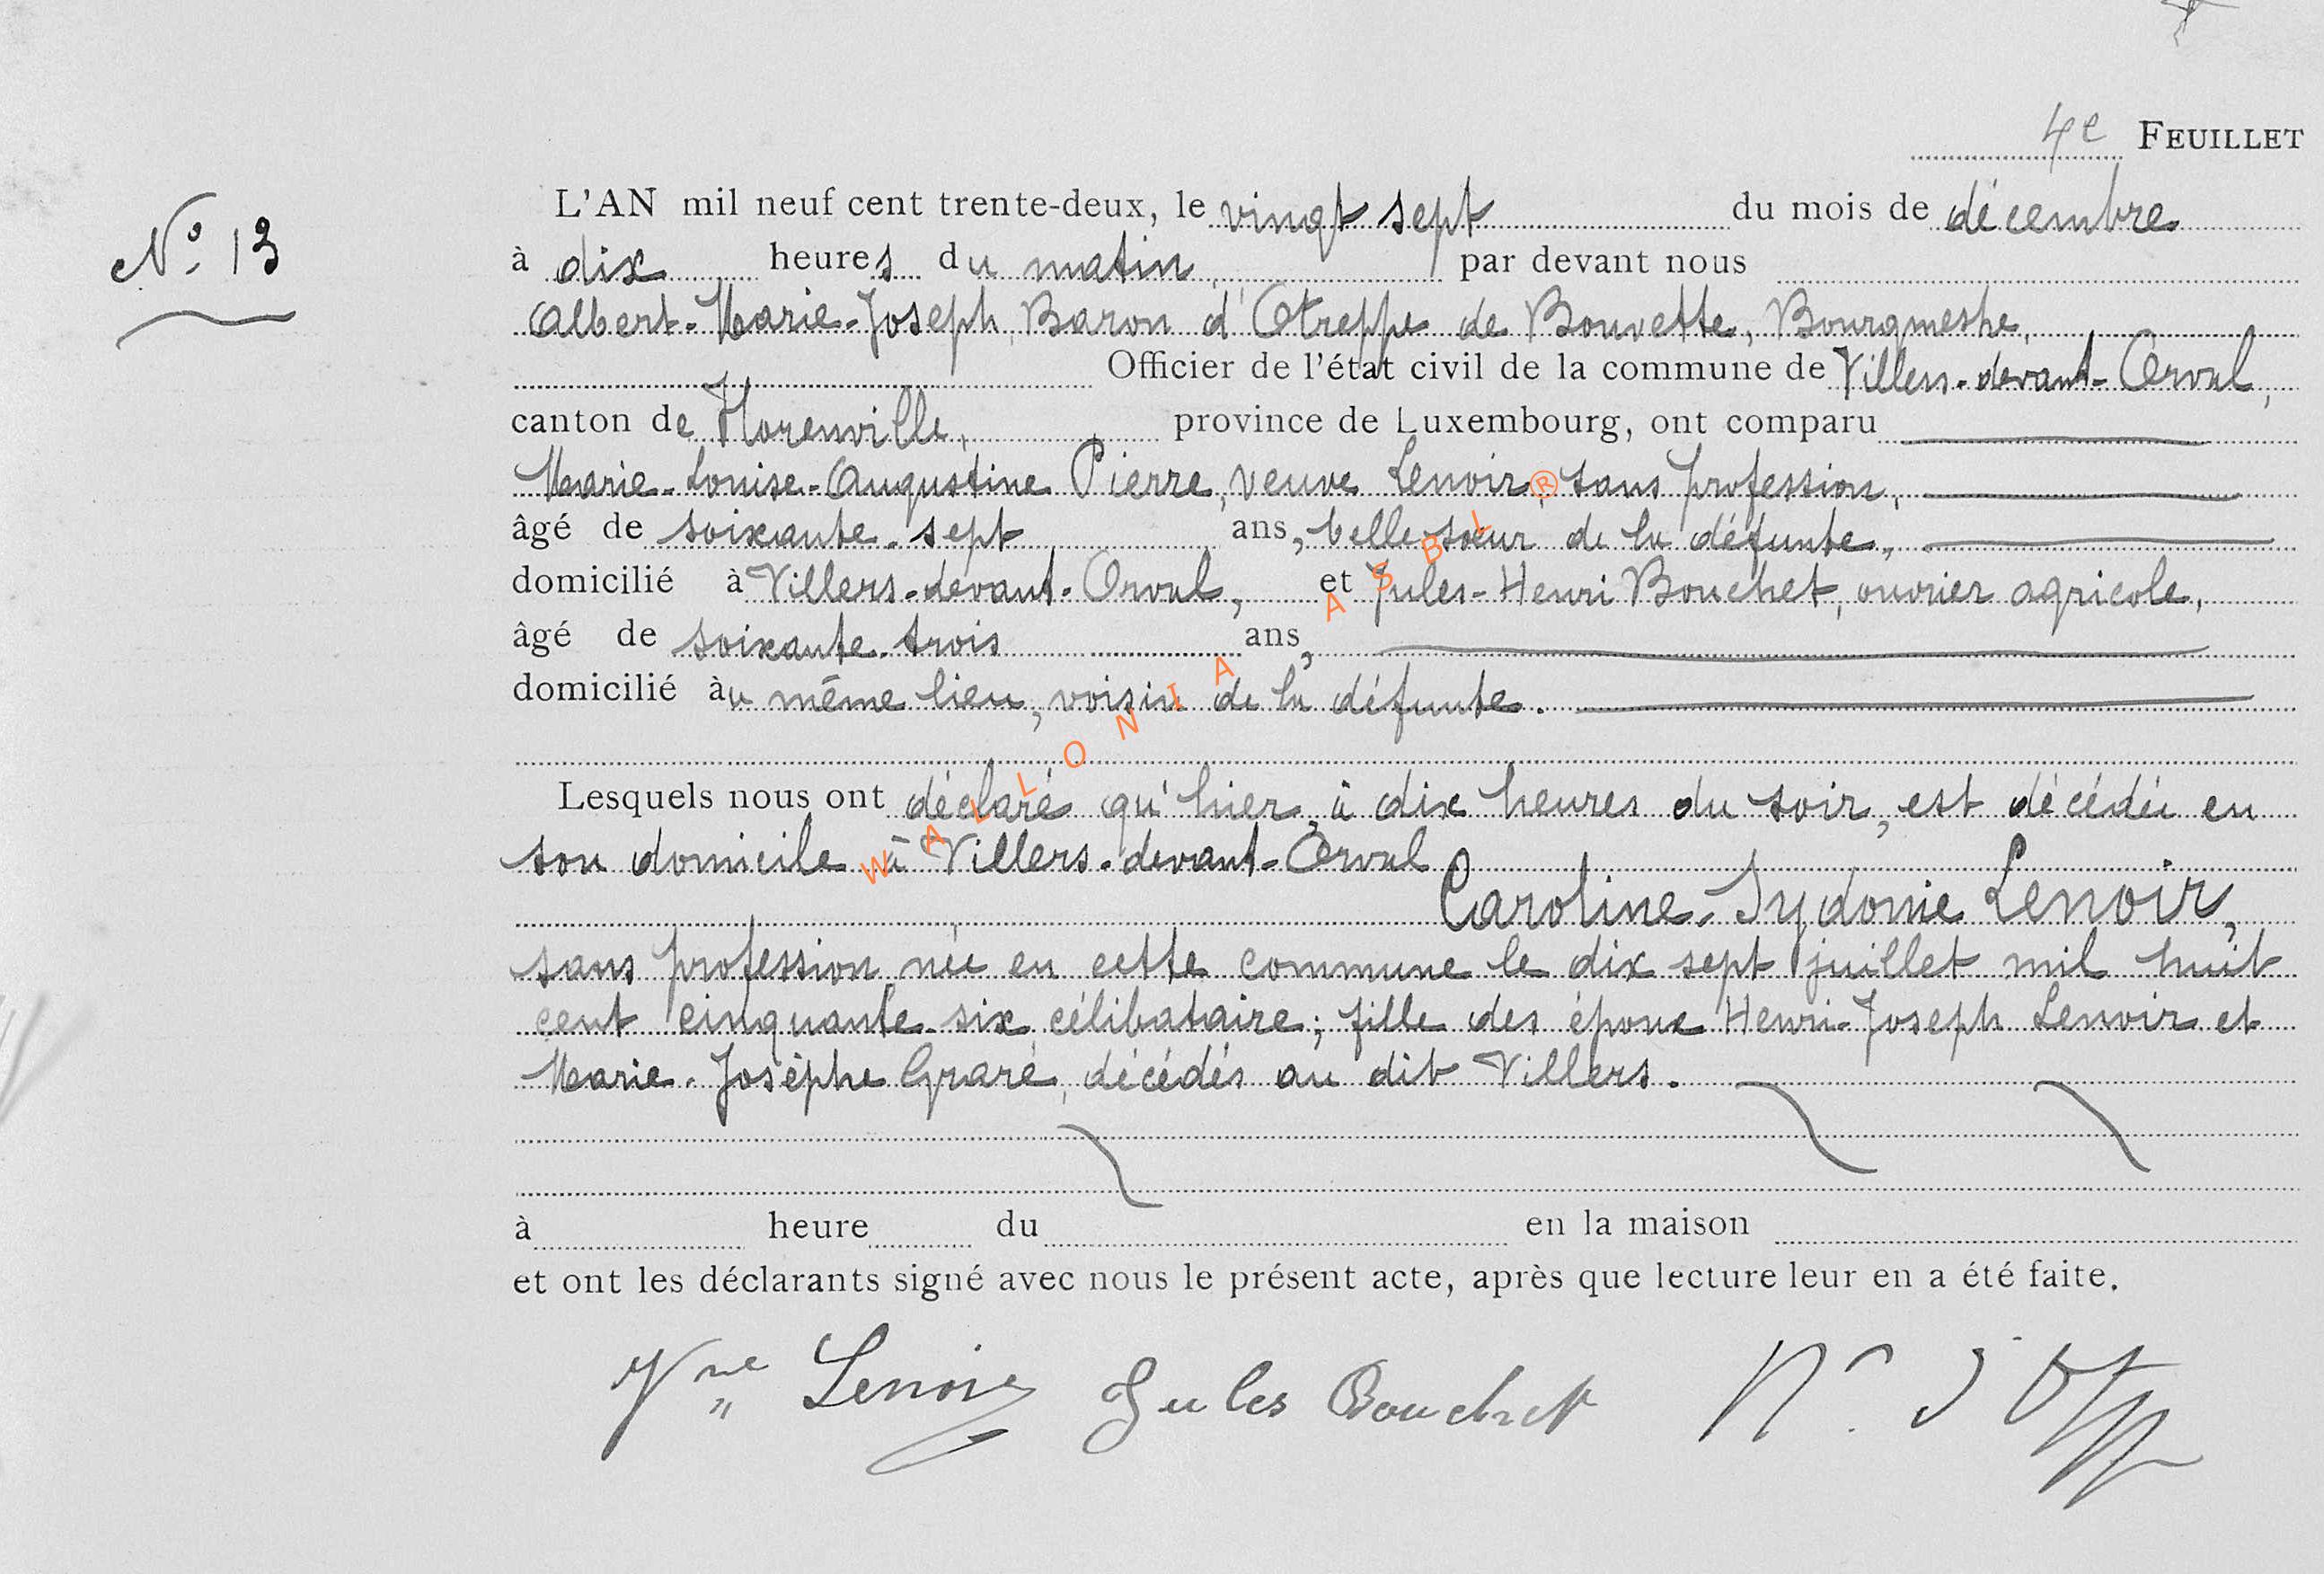 4e FEUILLET
No. 13
L'AN mil neuf cent trente-deux, le vingt sept du mois de décembre
à dix heures du matin, par devant nous
Albert-Marie-Joseph, Baron d'Otreppe de Bouvette, Bourgmestre,
Officier de l'état civil de la commune de Villers-devant-Orval,
canton de Florenville, province de Luxembourg, ont comparu
Marie-Louise-Augustine Pierre, veuve Lenoir, sans profession,
âgé de soixante-sept ans, belle-sœur de la défunte,
domicilié à Villers-devant-Orval, et Jules-Henri Bouchet, ouvrier agricole,
âgé de soixante-trois ans,
domicilié au même lieu, voisin de la défunte.
Lesquels nous ont déclaré qu'hier, à dix heures du soir, est décédée en
son domicile à Villers-devant-Orval
Caroline-Sydonie Lenoir,
sans profession, née en cette commune le dix sept juillet mil huit
cent cinquante-six, célibataire; fille des époux Henri-Joseph Lenoir et
Marie-Josèphe Graré, décédés au dit Villers.
à heure du en la maison
et ont les déclarants signé avec nous le présent acte, après que lecture leur en a été faite.
Vve Lenoir Jules Bouchet
WALLONIA ASBL ®